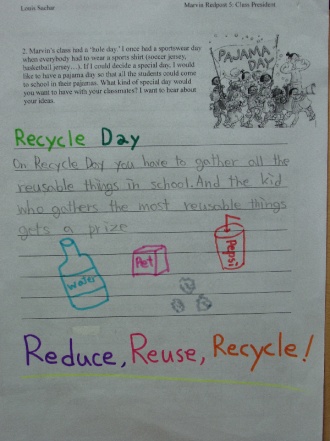 Louis Sachar
Marvin Redpost 5: Class President
2. Marvin's class had a 'hole day.' I once had a sportswear day
when everybody had to wear a sports shirt (soccer jersey,
basketball jersey…). If I could decide a special day, I would
like to have a pajama day so that all the students could come
to school in their pajamas. What kind of special day would
you want to have with your classmates? I want to hear about
your ideas.
PAJAMA
DAY
Recycle Day
On Recycle Day you have to gather all the
reusable things in school. And the kid
who gathers the most reusable things
gets a prize
Water
Pet
Pepsi
Reduce, Reuse, Recycle!